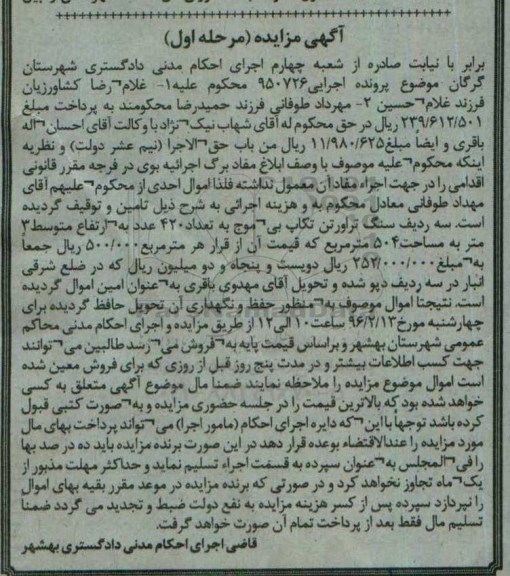 آگهی مزایده (مرحله اول)
برابر با نیابت صادره از شعبه چهارم اجرای احکام مدنی دادگستری شهرستان
گرگان موضوع پرونده اجرایی۹۵۰۷۲۶ محکوم علیه۱- غلام¬رضا کشاورزیان
فرزند غلام¬حسین ۲- مهرداد طوفانی فرزند حمیدرضا محکومند به پرداخت مبلغ
۲۳۹/۶۱۲/۵۰۱ ریال در حق محکوم له آقای شهاب نیک¬نژاد با وکالت آقای احسان¬اله
باقری و ایضاً مبلغ۱۱/۹۸۰/۶۲۵ ریال من باب حق¬الاجرا (نیم عشر دولت) و نظریه
اینکه محکوم¬علیه موصوف با وصف ابلاغ مفاد برگ اجرائیه بوی در فرجه مقرر قانونی
اقدامی را در جهت اجراء مفاد آن معمول نداشته فلذا اموال احدی از محکوم¬علیهم آقای
مهداد طوفانی معادل محکوم به و هزینه اجرائی به شرح ذیل تامین و توقیف گردیده
است. سه ردیف سنگ تراورتن تکاب بی¬موج به تعداد۴۲۰ عدد به¬ارتفاع متوسط۳
متر به مساحت۵۰۴ مترمربع که قیمت آن از قرار هر مترمربع۵۰۰/۰۰۰ ریال جمعاً
به¬مبلغ۲۵۲/۰۰۰/۰۰۰ ریال دویست و پنجاه و دو میلیون ریال که در ضلع شرقی
انبار در سه ردیف دپو شده و تحویل آقای مهدوی باقری به¬عنوان امین اموال گردیده
است. نتیجتاً اموال موصوف به¬منظور حفظ و نگهداری آن تحویل حافظ گردیده برای
چهارشنبه مورخ۹۶/۲/۱۳ ساعت۱۰ الی۱۲ از طریق مزایده و اجرای احکام مدنی محاکم
عمومی شهرستان بهشهر و براساس قیمت پایه به¬فروش می¬رسد طالبین می¬توانند
جهت کسب اطلاعات بیشتر و در مدت پنج روز قبل از روزی که برای فروش معین شده
است اموال موضوع مزایده را ملاحظه نمایند ضمناً مال موضوع آگهی متعلق به کسی
خواهد شده بود که بالاترین قیمت را در جلسه حضوری مزایده و به¬صورت کتبی قبول
کرده باشد توجهاً با این¬که دایره اجرای احکام (مامور اجرا) می¬تواند پرداخت بهای مال
مورد مزایده را عندالاقتضاء بوعده قرار دهد در این صورت برنده مزایده باید ده در صد بها
را فی¬المجلس به¬عنوان سپرده به قسمت اجراء تسلیم نماید و حداکثر مهلت مذبور از
یک¬ماه تجاوز نخواهد کرد و در صورتی که برنده مزایده در موعد مقرر بقیه بهای اموال
را نپردازد سپرده پس از کسر هزینه مزایده به نفع دولت ضبط و تجدید می گردد ضمناً
تسلیم مال فقط بعد از پرداخت تمام آن صورت خواهد گرفت.
قاضی اجرای احکام مدنی دادگستری بهشهر